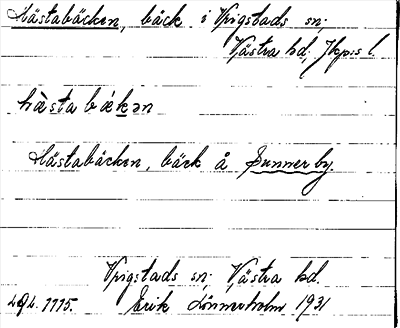 Hästabäcken, bäck i Vrigstads sn;
Västra hd; Jkpgs l.
hæ̀sta bækən
Hästabäcken, bäck å Sunnerby.
Vrigstads sn; Västra hd.
Erik Lönnerholm 1931